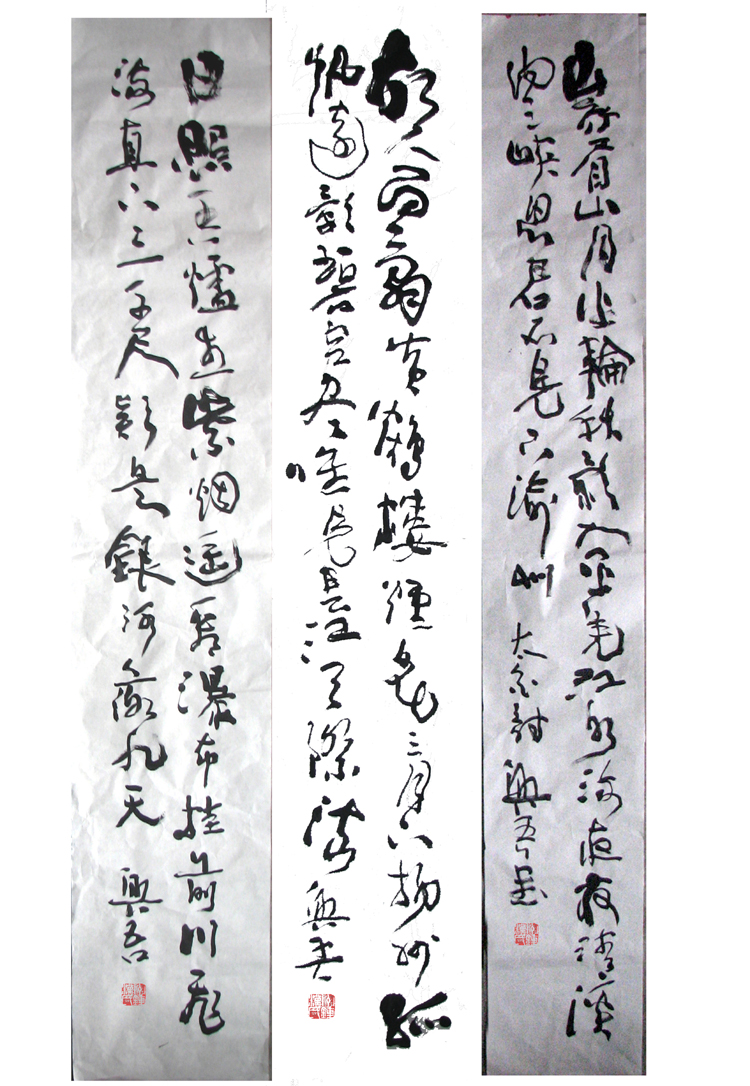 峩眉山月半輪秋影入平羌江水流夜發清溪
向三峽思君不見下渝州 太白詩 興吾書
故人西辭黄鶴樓煙花三月下揚州孤
帆遠影碧空盡唯見長江天際流 興吾
日照香爐生紫烟遥看瀑布挂前川飛
流直下三千尺疑是銀河落九天 興吾